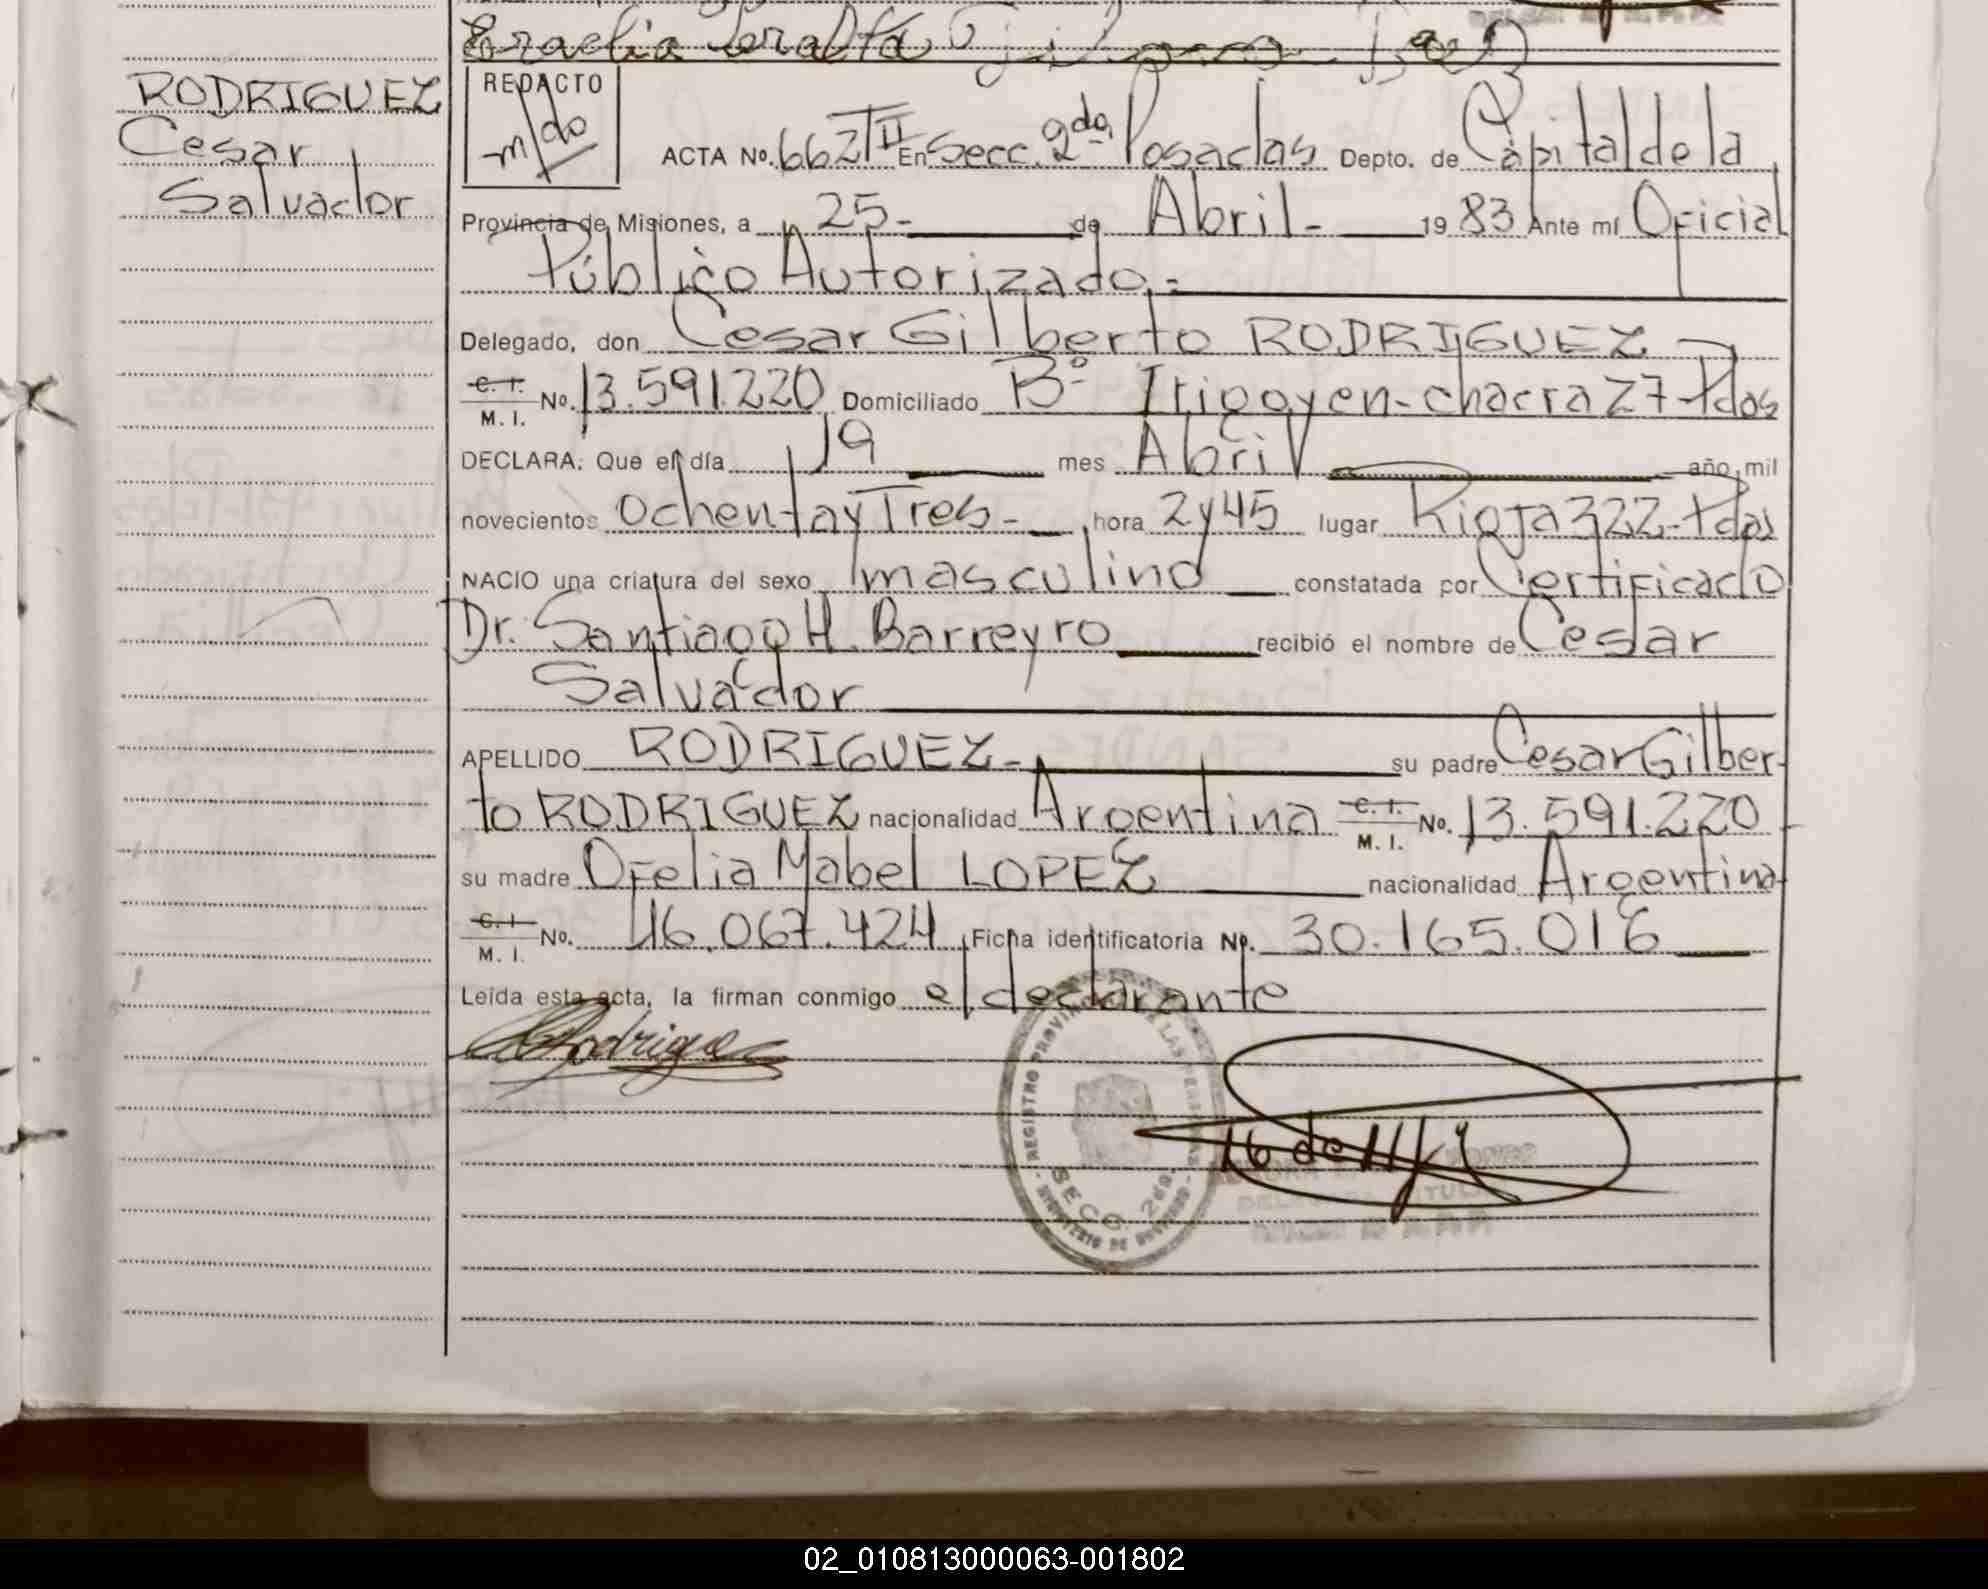 Eraclia Peralta
RODRIGUEZ
Cesar
Salvador
REDACTO
m/do
ACTA No. 662 TII En Secc. 2da. Posadas Depto. de Capital de la
Provincia de Misiones, a 25- de Abril- 1983 Ante mí Oficial
Público Autorizado.-
Delegado, don Cesar Gilberto RODRIGUEZ
C. I.
M. I. No. 13.591.220 Domiciliado B° Irigoyen-chacra 27-Pdas
DECLARA: Que el día 19 mes Abril año mil
novecientos ochenta y Tres- hora 2y45 lugar Rioja 322-Pdas
NACIO una criatura del sexo masculino constatada por Certificado
Dr. Santiago H. Barreyro recibió el nombre de Cesar
Salvador
APELLIDO RODRIGUEZ- su padre Cesar Gilber-
to RODRIGUEZ nacionalidad Argentina C. I.
M. I. No. 13.591.220
su madre Ofelia Mabel LOPEZ nacionalidad Argentina
C. I.
M. I. No. 16.067.424 Ficha identificatoria No. 30.165.016
Leída esta acta, la firman conmigo el declarante
Rodriguez
REGISTRO PROVINCIAL DE LAS PERSONAS
SECC. 2da.
MINISTERIO DE GOBIERNO
02_010813000063-001802